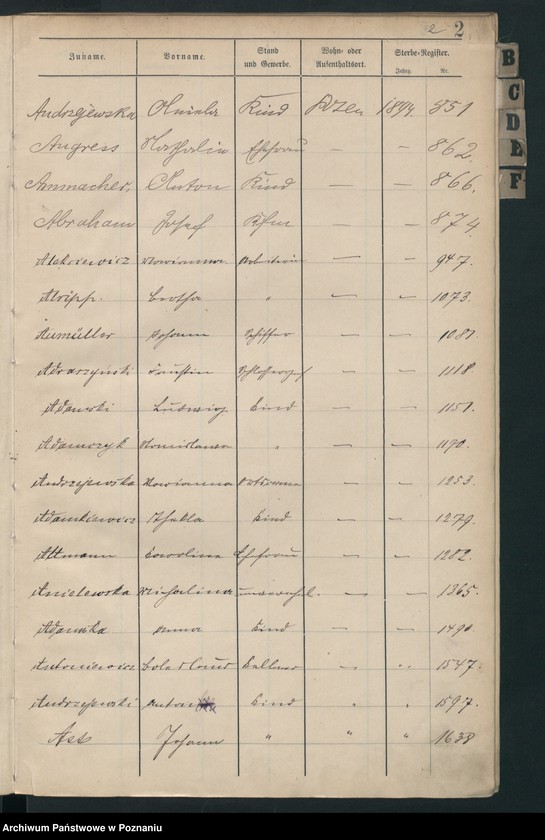 2 2
Zuname. Vorname. Stand und Gewerbe. Wohn- oder Aufenthaltsort. Sterbe-Register.
Jahrg. Nr.
Andrzejewska Kind Posen 1894. 851
Angress Nathalie Ehefrau — — 862.
Ammacher, Anton Kind — — 866.
Abraham Josef Kfm — — 874.
Aleksiewicz Marianna Arbeiterin — — 947.
Bertha " — — 1073.
Aumüller Johann Schiffer — — 1081.
Faustin — — 1118.
Adamski Ludwig Kind — — 1151.
Adamczyk Stanislawa " — — 1190.
Andrzejewska Marianna — — 1253.
Adamkiewicz Thekla Kind — — 1279.
Altmann Carolina Ehefrau — — 1282.
Anielewska Michalina — — 1365.
Adamska Anna Kind — — 1490.
Antoniewicz Boleslaus Kellner — " 1547.
Andrzejewski Anton Kind " " 1597.
Ast Johann " " " 1638
B
C
D
E
F
Archiwum Państwowe w Poznaniu